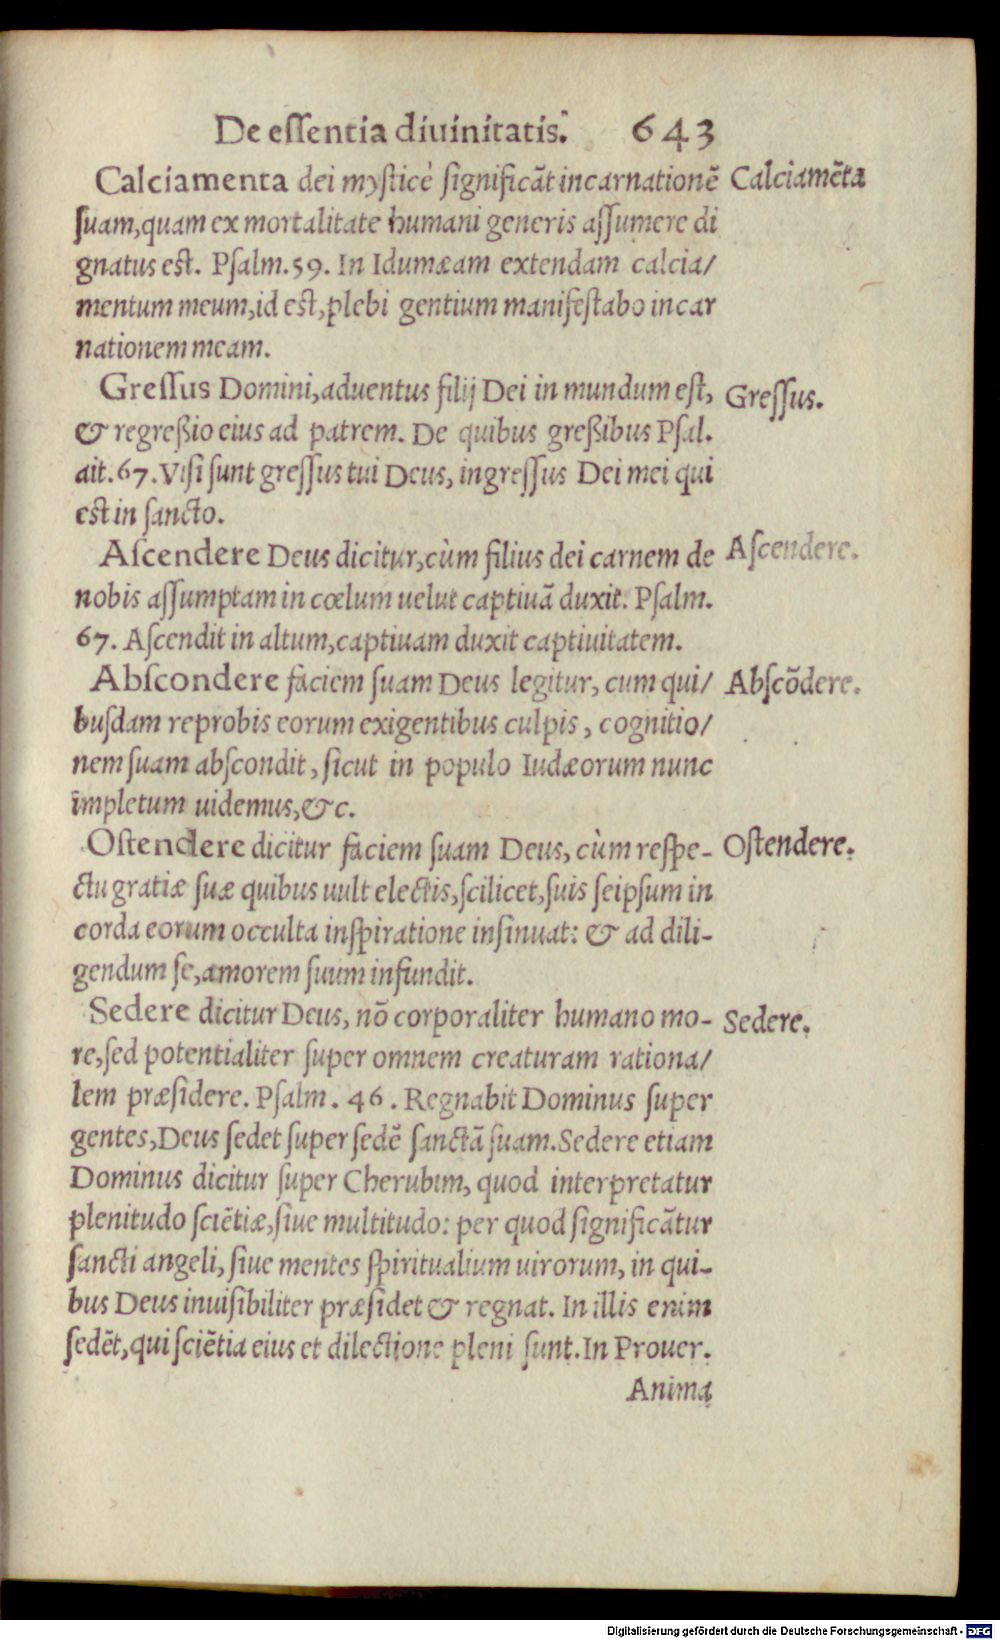 De essentia diuinitatis. 643
Calciamenta dei mysticè significãt incarnationẽ Calciamẽta
suam, quam ex mortalitate humani generis assumere di
gnatus est. Psalm. 59. In Idumæam extendam calcia/
mentum meum, id est, plebi gentium manifestabo incar
nationem meam.
Gressus Domini, aduentus filij Dei in mundum est, Gressus.
& regreßio eius ad patrem. De quibus greßibus Psal.
ait. 67. Visi sunt gressus tui Deus, ingressus Dei mei qui
est in sancto.
Ascendere Deus dicitur, cùm filius dei carnem de Ascendere.
nobis assumptam in cœlum uelut captiuã duxit. Psalm.
67. Ascendit in altum, captiuam duxit captiuitatem.
Abscondere faciem suam Deus legitur, cum qui/ Abscõdere.
busdam reprobis eorum exigentibus culpis, cognitio/
nem suam abscondit, sicut in populo Iudæorum nunc
impletum uidemus, &c.
Ostendere dicitur faciem suam Deus, cùm respe- Ostendere.
ctu gratiæ suæ quibus uult electis, scilicet, suis seipsum in
corda eorum occulta inspiratione insinuat: & ad dili-
gendum se, amorem suum infundit.
Sedere dicitur Deus, nõ corporaliter humano mo- Sedere.
re, sed potentialiter super omnem creaturam rationa/
lem præsidere. Psalm. 46. Regnabit Dominus super
gentes, Deus sedet super sedẽ sanctã suam. Sedere etiam
Dominus dicitur super Cherubim, quod interpretatur
plenitudo sciẽtiæ, siue multitudo: per quod significãtur
sancti angeli, siue mentes spiritualium uirorum, in qui-
bus Deus inuisibiliter præsidet & regnat. In illis enim
sedẽt, qui sciẽtia eius et dilectione pleni sunt. In Prouer.
Anima
Digitalisierung gefördert durch die Deutsche Forschungsgemeinschaft - DFG